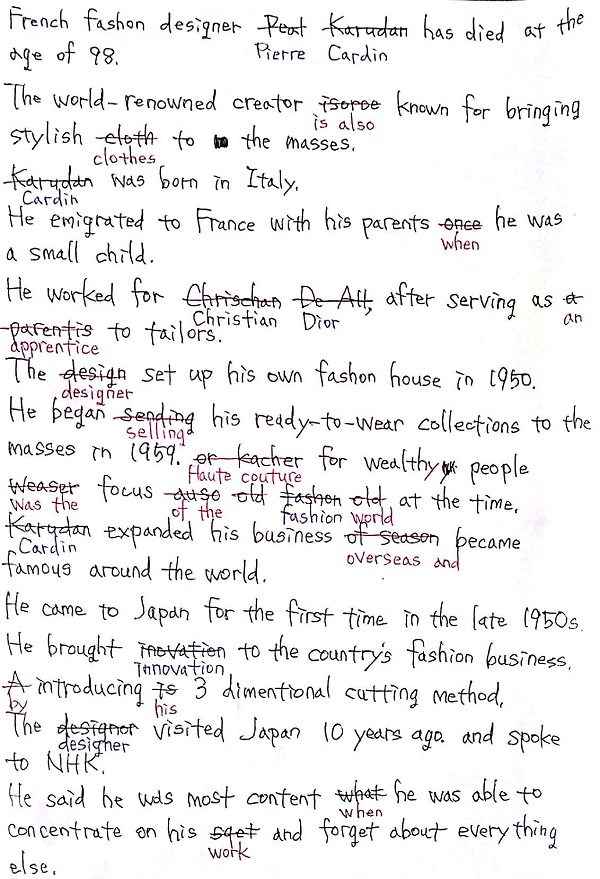 French fashon designer Peat Karudan has died at the
age of 98. Pierre Cardin
The world-renowned creator isoroe known for bringing
is also
stylish cloth to the masses.
clothes
Karudan was born in Italy.
Cardin
He emigrated to France with his parents once he was
when
a small child.
He worked for Chrischan De All, after serving as a
Christian Dior an
parentis to tailors.
apprentice
The design set up his own fashon house in 1950.
designer
He began sending his ready-to-wear collections to the
selling
masses in 1959. or kacher for wealthy people
Haute couture
weaser focus auso old fashon old at the time.
was the of the fashion world
Karudan expanded his business of season became
Cardin overseas and
famous around the world.
He came to Japan for the first time in the late 1950s.
He brought inovation to the country's fashion business.
innovation
A introducing is 3 dimentional cutting method,
by his
The designor visited Japan 10 years ago. and spoke
designer
to NHK.
He said he was most content what he was able to
when
concentrate on his sqet and forget about everything
work
else.